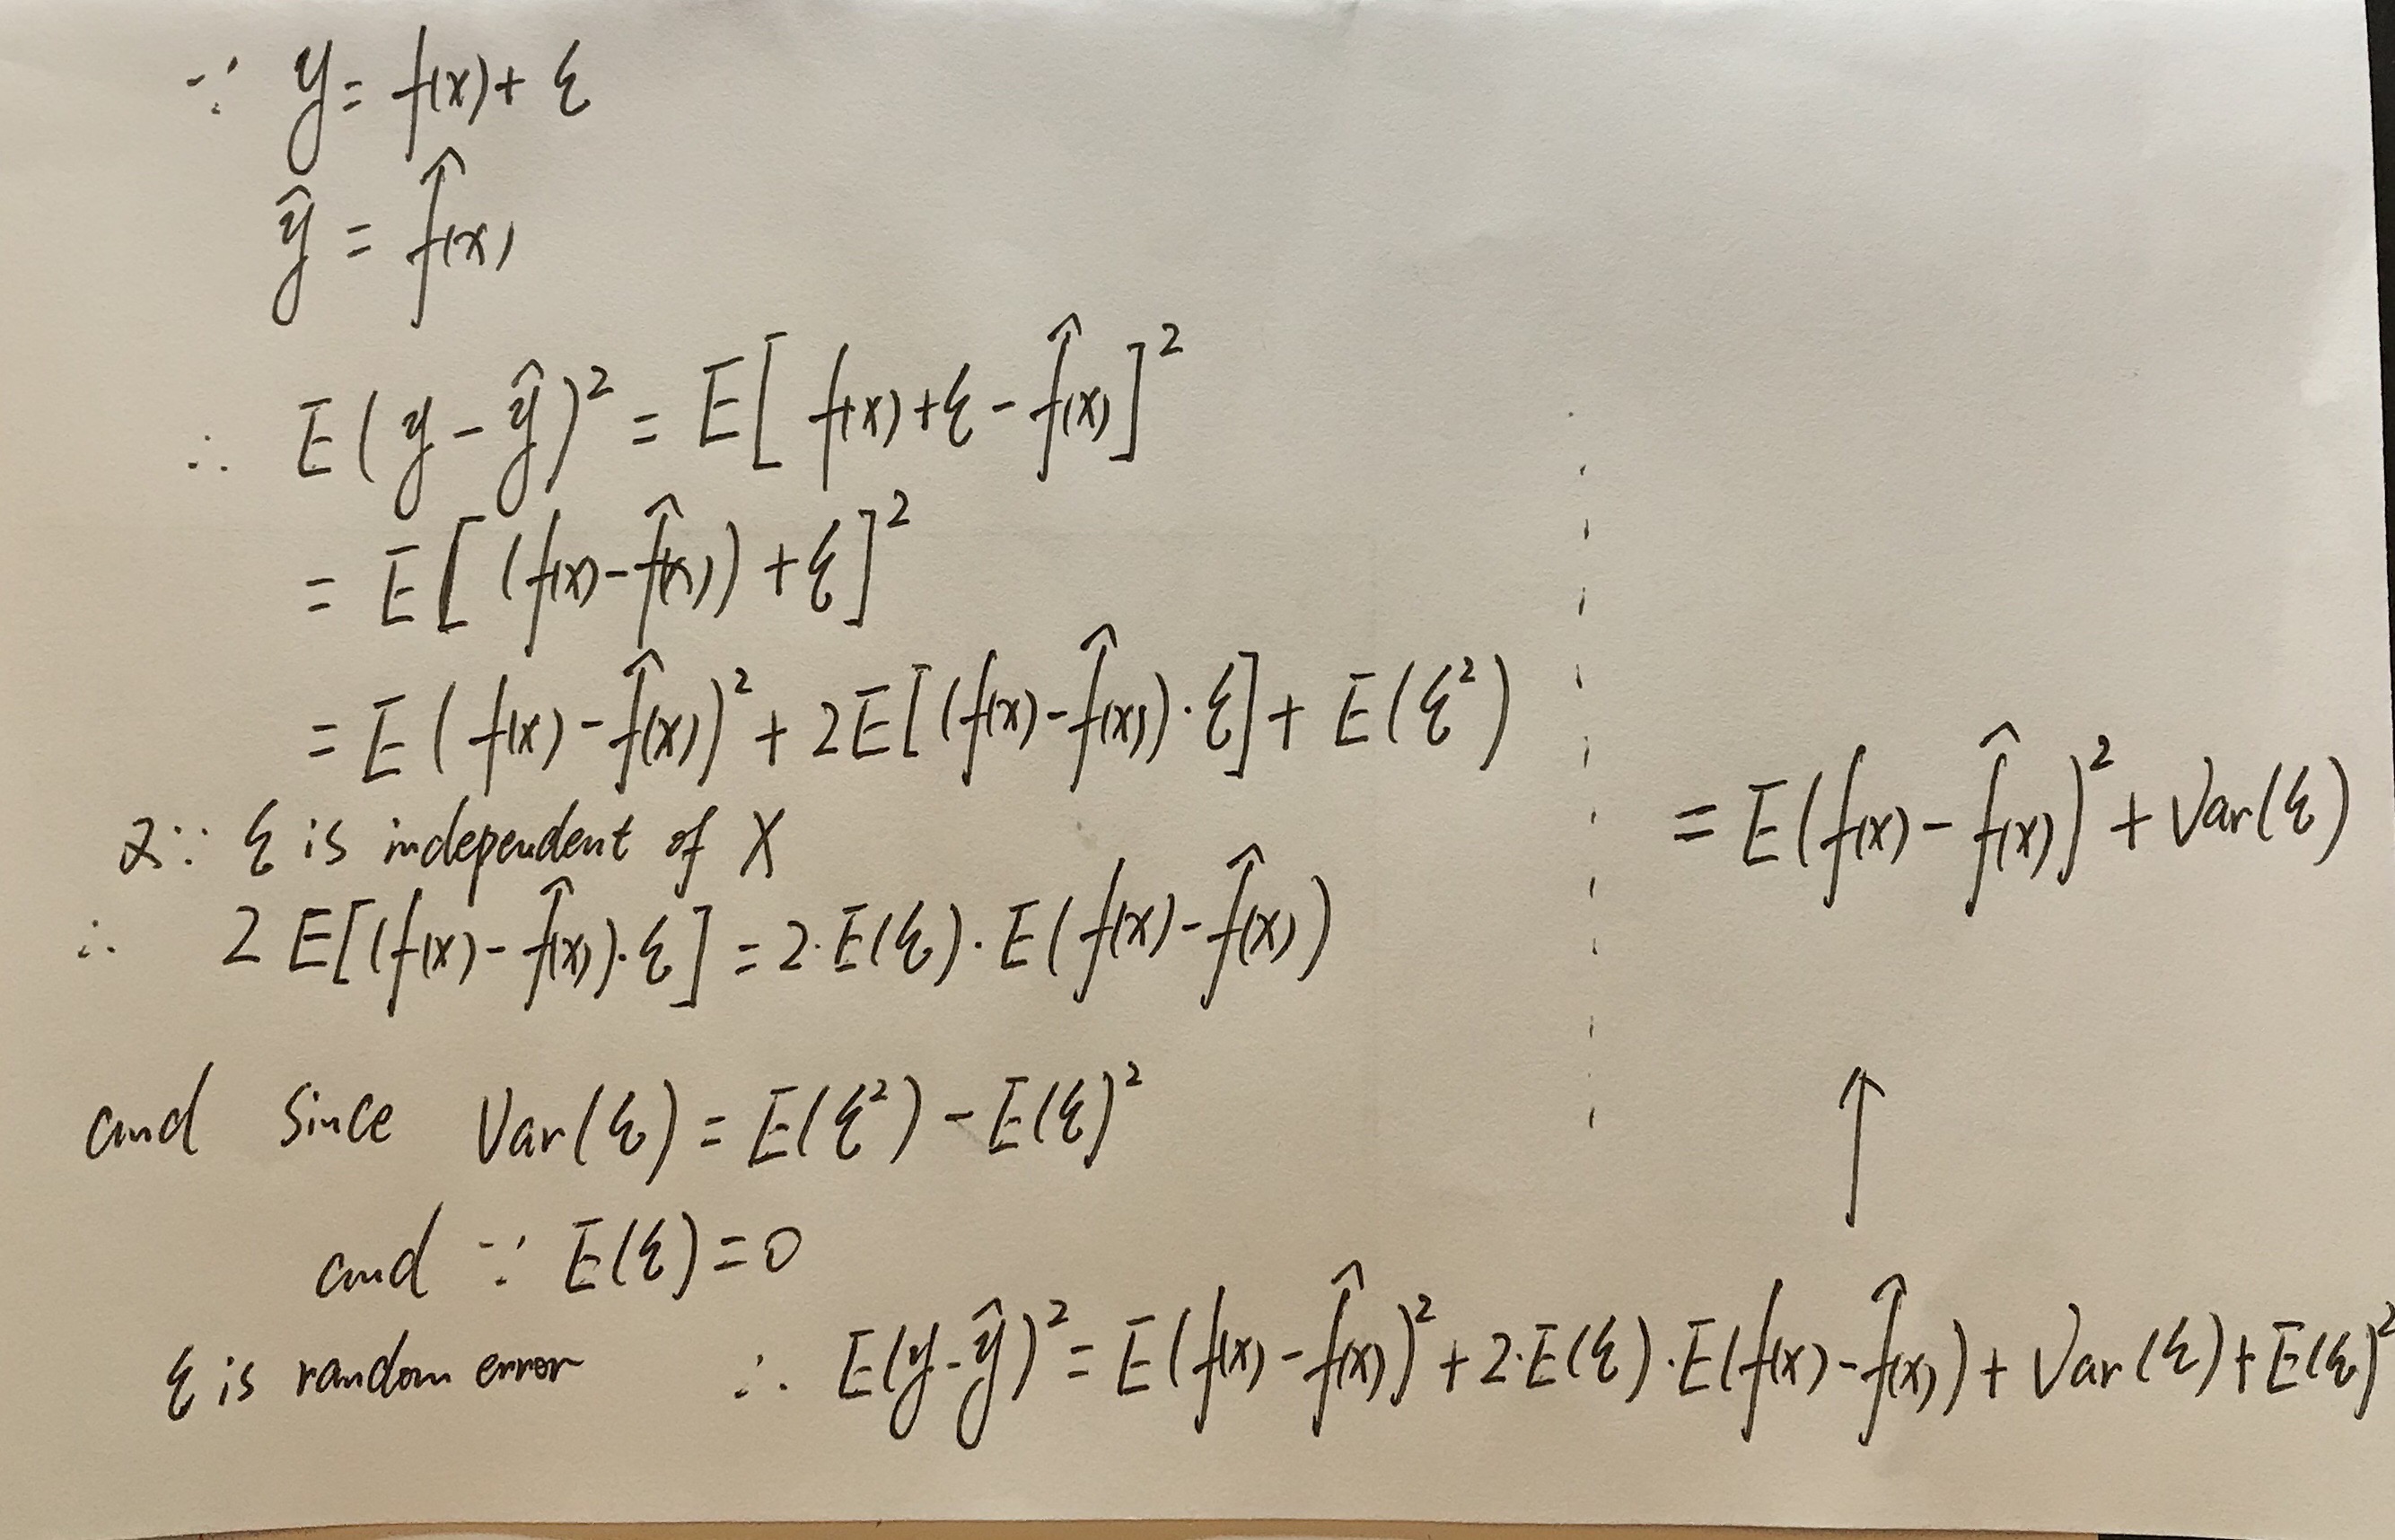 ∵ y = f(x) + ε
ŷ = f̂(x)
∴ E(y − ŷ)² = E[f(x) + ε − f̂(x)]²
= E[(f(x) − f̂(x)) + ε]²
= E(f(x) − f̂(x))² + 2E[(f(x) − f̂(x))·ε] + E(ε²)
∵ ε is independent of X
∴ 2E[(f(x) − f̂(x))·ε] = 2·E(ε)·E(f(x) − f̂(x))
and since Var(ε) = E(ε²) − E(ε)²
and ∵ E(ε) = 0
ε is random error
∴ E(y − ŷ)² = E(f(x) − f̂(x))² + 2·E(ε)·E(f(x) − f̂(x)) + Var(ε) + E(ε)²
↑
= E(f(x) − f̂(x))² + Var(ε)